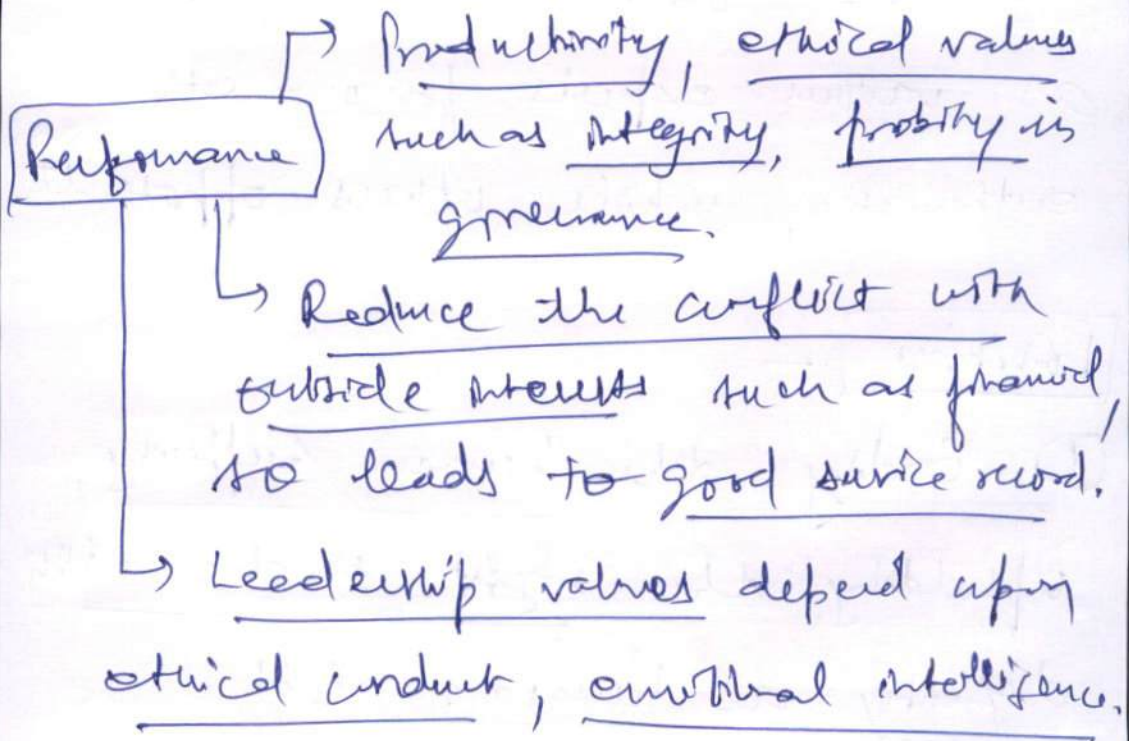 Performance
Productivity, ethical values
such as integrity, probity in
governance.
Reduce the conflict with
outside interests such as financial,
so leads to good service record.
Leadership values depend upon
ethical conduct, emotional intelligence.